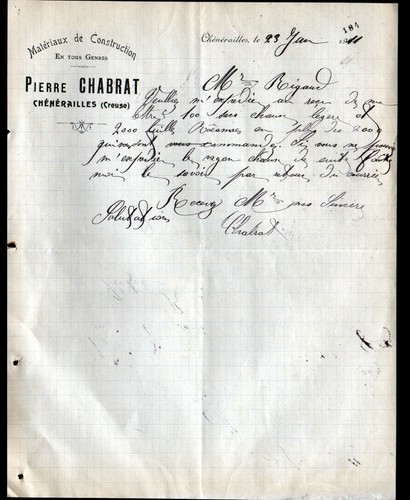 Matériaux de Construction
EN TOUS GENRES
PIERRE CHABRAT
CHÉNÉRAILLES (Creuse)
Chénérailles, le 23 Juin 1911
184
Mr Rigaud
Veuillez m'expedier au recu de ma
lettre 100 sacs chaux legere et
2000 tuilles Roumazieres en plus des 2000
qui vous sont commandees Si vous ne pouvez
m'expedier le wagon chaux de suite faite
moi le savoir par retour du courrier
Recevez Mr mes Sinceres
Salutations
Chabrat